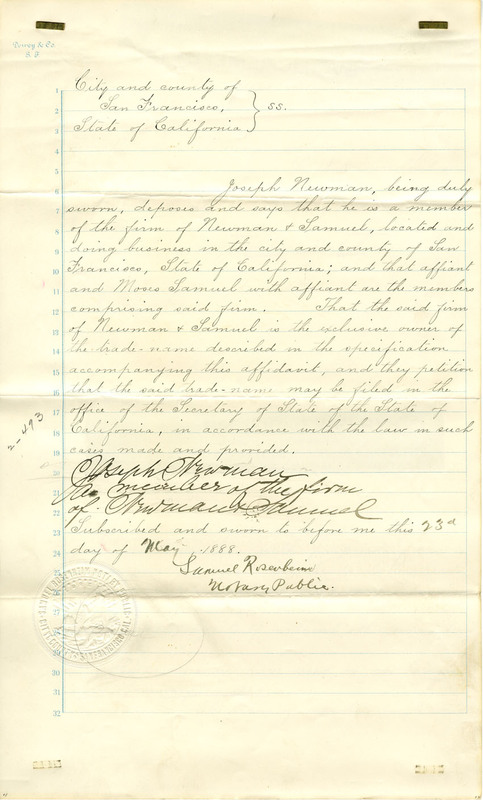 Dewey & Co.
S. F.
City and county of
San Francisco, } ss.
State of California
Joseph Newman, being duly
sworn, deposes and says that he is a member
of the firm of Newman & Samuel, located and
doing business in the city and county of San
Francisco, State of California; and that affiant
and Moses Samuel with affiant are the members
comprising said firm. That the said firm
of Newman & Samuel is the exclusive owner of
the trade-name described in the specification
accompanying this affidavit, and they petition
that the said trade-name may be filed in the
office of the Secretary of State of the State of
California, in accordance with the law in such
cases made and provided.
Joseph Newman
As member of the firm
of Newman & Samuel
Subscribed and sworn to before me this 23d
day of May 1888.
Samuel Rosenheim
Notary Public.
2-493
1
2
3
4
5
6
7
8
9
10
11
12
13
14
15
16
17
18
19
20
21
22
23
24
25
26
27
28
29
30
31
32